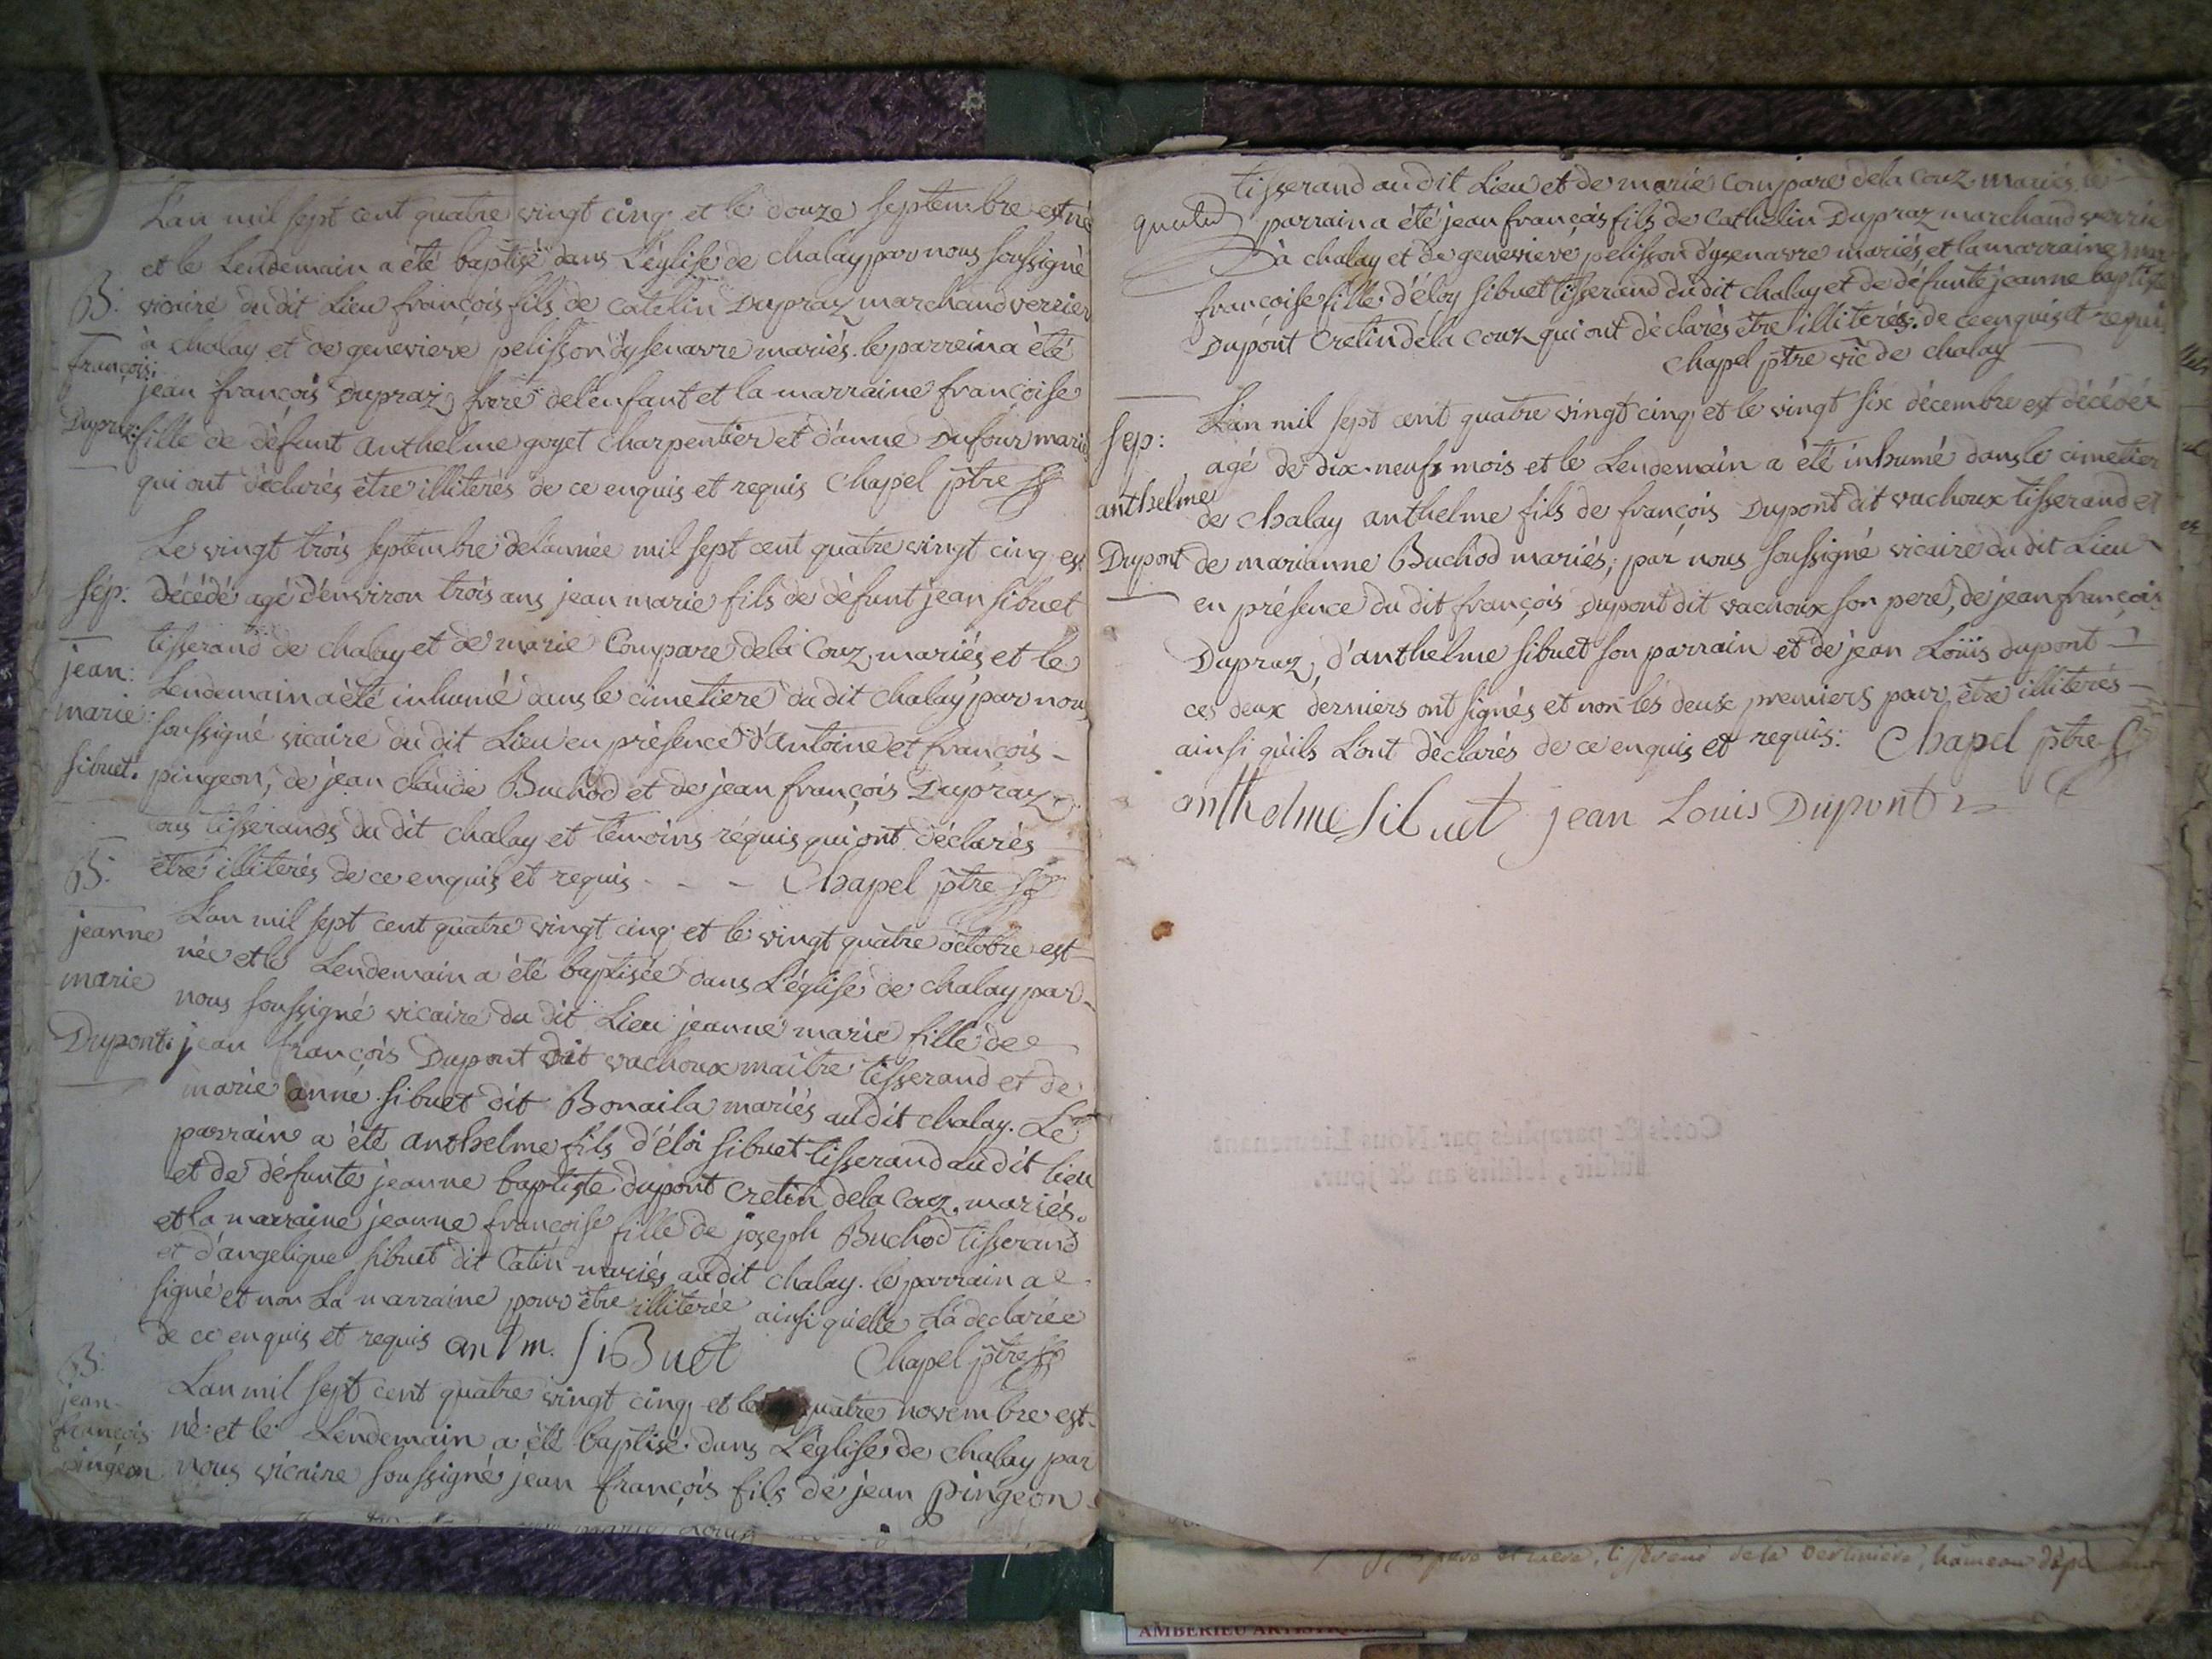 L'an mil sept cent quatre vingt cinq et le douze septembre est né
et le Lendemain a été baptisé dans L'église de chalay par nous soussigné
B: vicaire dudit Lieu françois fils de catelin Dupraz marchand verrier
françois: à chalay et de genevieve pelisson d'ysenavre mariés. le parrein a été
jean françois Dupraz frere delenfant et la marraine françoise
Dupraz: fille de défunt anthelme goyet charpentier et d'anne Dufour mariés
qui ont déclarés être illiterés de ce enquis et requis Chapel ptre
Le vingt trois septembre delannée mil sept cent quatre vingt cinq est
sép: Décédé agé d'environ trois ans jean marie fils de défunt jean sibuet
jean: tisserand de chalay et de marie Compare dela Couz, mariés et le
marie: Lendemain a été inhumé dans le cimetiere du dit chalay par nous
soussigné vicaire du dit Lieu en présence d'antoine et françois
sibuet. pingeon, de jean claude Buchod et de jean françois Dupraz
tous tisserands du dit chalay et temoins réquis qui ont déclarés
être illiterés de ce enquis et requis - - - Chapel ptre
B: L'an mil sept cent quatre vingt cinq et le vingt quatre octobre est
jeanne née et le Lendemain a été baptisée dans L'église de chalay par
marie nous soussigné vicaire du dit Lieu jeanne marie fille de
Dupont: jean françois Dupont dit vachoux maître tisserand et de
marie anne sibuet dit Bonaila mariés audit chalay. Le
parrain a été anthelme fils d'éloi sibuet tisserand audit lieu
et de défunte jeanne baptiste dupont cretin dela Couz. mariés.
et la marraine jeanne françoise fille de joseph Buchod tisserand
et d'angelique sibuet dit Catin mariés audit chalay. le parrain a
signé et non La marraine pour être illiterée ainsi quelle La déclarée
de ce enquis et requis antm. siBuet Chapel ptre
B: L'an mil sept cent quatre vingt cinq et le quatre novembre est
jean né et le Lendemain a été baptisé dans L'église de chalay par
françois
pingeon nous vicaire soussigné jean françois fils de jean pingeon
tisserand audit Lieu et de marie Compare dela Couz mariés le
parrain a été jean françois fils de Cathelin Dupraz marchand verrie
à chalay et de genevieve pelisson d'ysenavre mariés et la marraine mar
françoise fille d'éloy sibuet tisserand du dit chalay et de défunte jeanne baptiste
Dupont Cretin dela couz qui ont déclarés être illiterés. de ce enquis et requis
Chapel ptre vic de chalay
sep: L'an mil sept cent quatre vingt cinq et le vingt six décembre est décédé
agé de dix neufs mois et le Lendemain a été inhumé dans le cimetier
anthelme de Chalay anthelme fils de françois Dupont dit vachoux tisserand et
Dupont de marianne Buchod mariés, par nous soussigné vicaire du dit Lieu
en présence du dit françois Dupont dit vachoux son pere, de jean françois
Dupraz, d'anthelme sibuet son parrain et de jean Loüis dupont
ces deux derniers ont signés et non les deux premiers pour être illiterés
ainsi qu'ils L'ont déclarés de ce enquis et requis: Chapel ptre
anthelme sibuet jean Louis Dupont
Cotés & paraphés par Nous Lieutenant
AMBERIEU